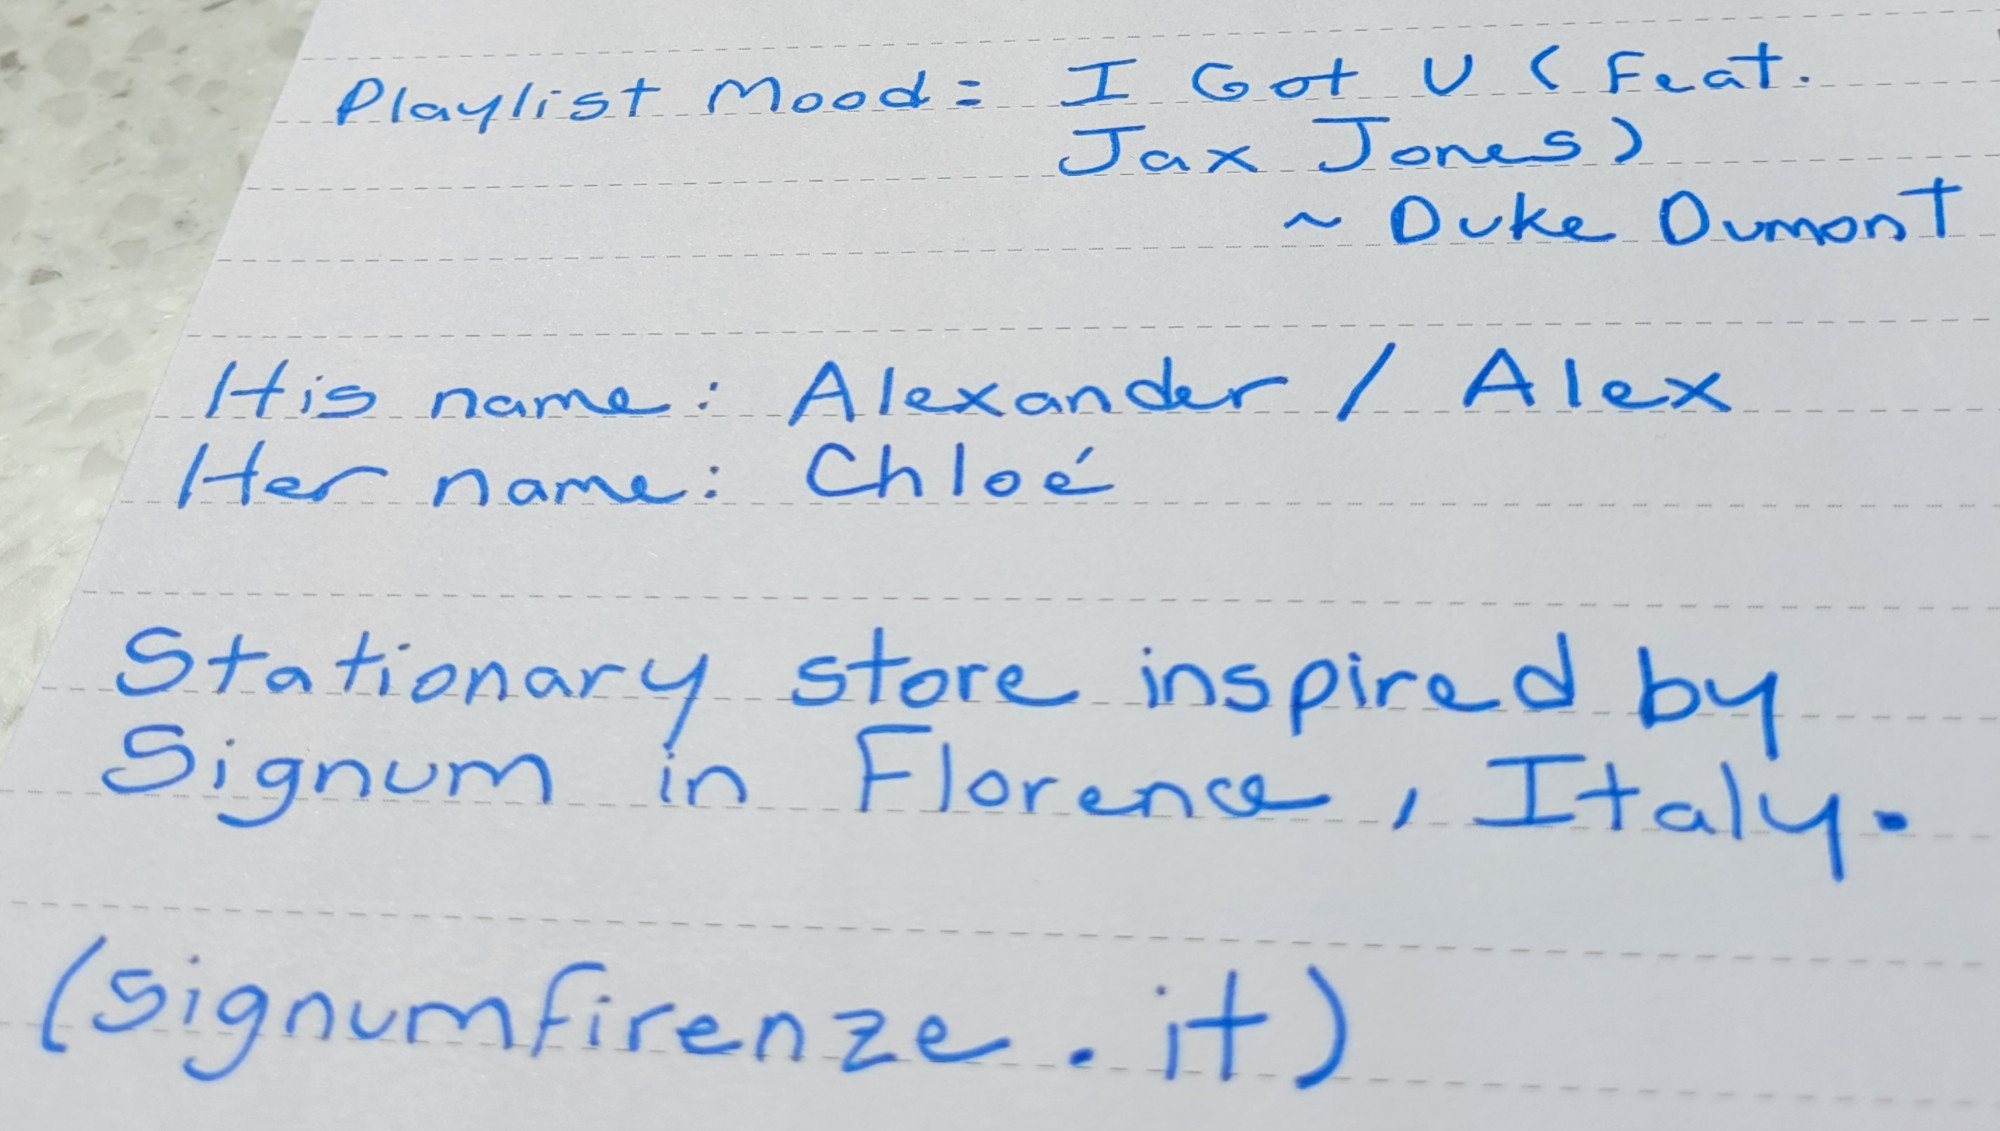 Playlist Mood: I Got U (Feat.
Jax Jones)
~ Duke Dumont
His name: Alexander / Alex
Her name: Chloé
Stationary store inspired by
Signum in Florence, Italy.
(signumfirenze.it)